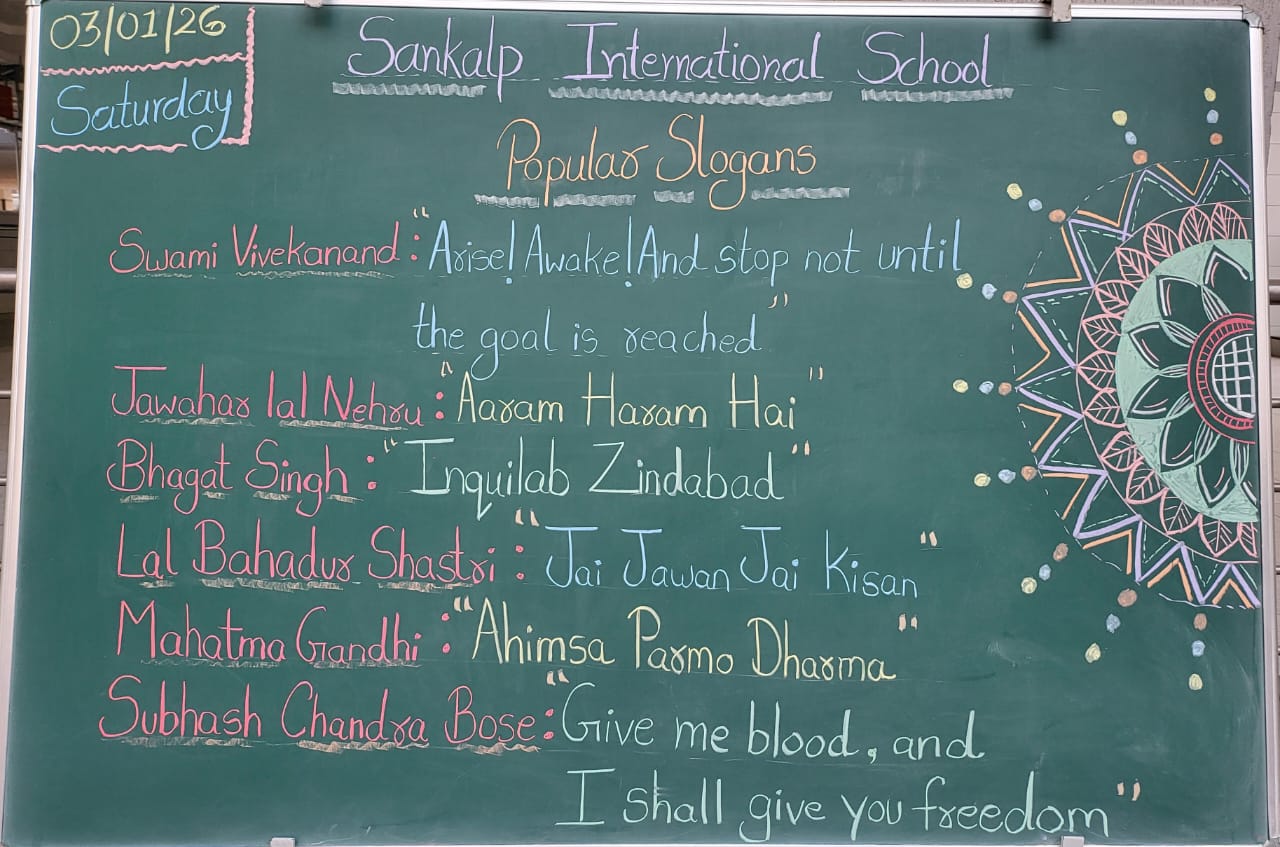 03/01/26
Saturday
Sankalp International School
Popular Slogans
Swami Vivekanand : "Arise! Awake! And stop not until
the goal is reached"
Jawahar lal Nehru : "Aaram Haram Hai"
Bhagat Singh : "Inquilab Zindabad"
Lal Bahadur Shastri : "Jai Jawan Jai Kisan"
Mahatma Gandhi : "Ahimsa Parmo Dharma"
Subhash Chandra Bose : "Give me blood, and
I shall give you freedom"